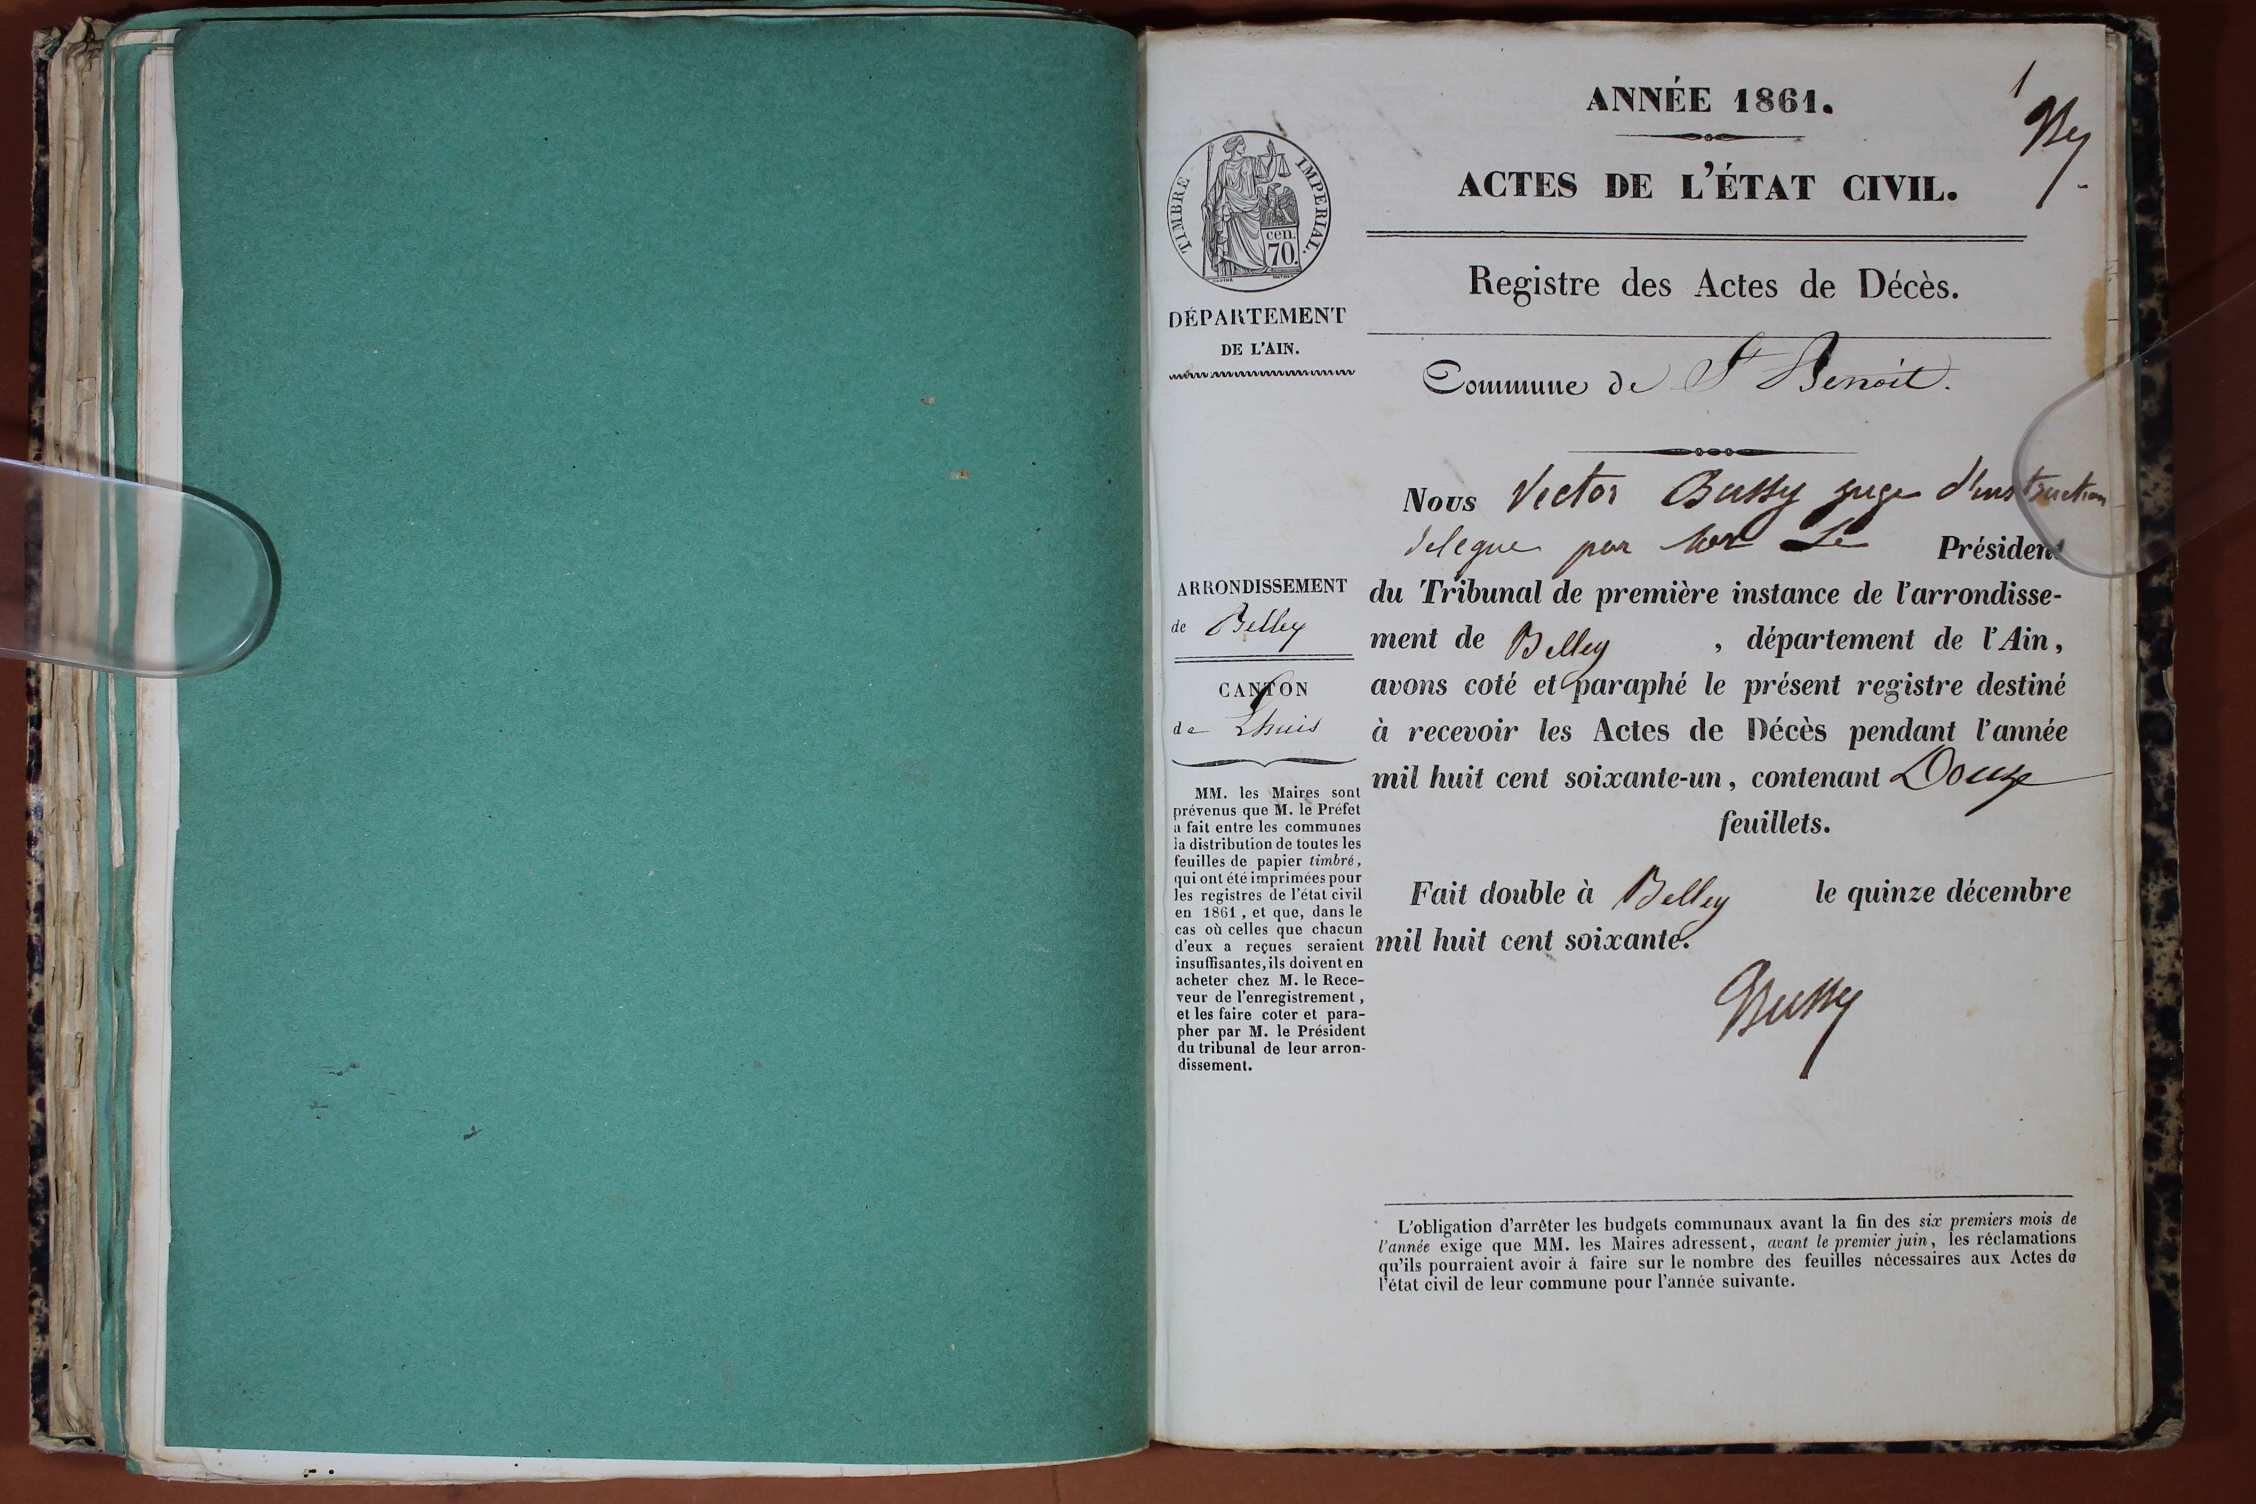 1
By
ANNÉE 1861.
ACTES DE L'ÉTAT CIVIL.
Registre des Actes de Décès.
Commune de St Benoit.
TIMBRE IMPERIAL.
cen.
70.
DÉPARTEMENT
DE L'AIN.
ARRONDISSEMENT
de Belley
CANTON
de Lhuis
MM. les Maires sont
prévenus que M. le Préfet
a fait entre les communes
la distribution de toutes les
feuilles de papier timbré,
qui ont été imprimées pour
les registres de l'état civil
en 1861, et que, dans le
cas où celles que chacun
d'eux a reçues seraient
insuffisantes, ils doivent en
acheter chez M. le Rece-
veur de l'enregistrement,
et les faire coter et para-
pher par M. le Président
du tribunal de leur arron-
dissement.
Nous Victor Bussy juge d'instruction
delegue par Mr Le Président
du Tribunal de première instance de l'arrondisse-
ment de Belley, département de l'Ain,
avons coté et paraphé le présent registre destiné
à recevoir les Actes de Décès pendant l'année
mil huit cent soixante-un, contenant Douze
feuillets.
Fait double à Belley le quinze décembre
mil huit cent soixante.
Bussy
L'obligation d'arrêter les budgets communaux avant la fin des six premiers mois de
l'année exige que MM. les Maires adressent, avant le premier juin, les réclamations
qu'ils pourraient avoir à faire sur le nombre des feuilles nécessaires aux Actes de
l'état civil de leur commune pour l'année suivante.